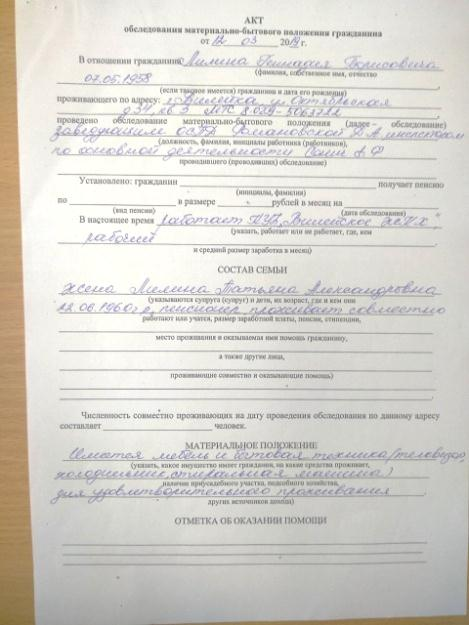 АКТ
обследования материально-бытового положения гражданина
от 12 03 2019 г.
В отношении гражданина Милина Геннадия Борисовича
07.05.1958
(фамилия, собственное имя, отчество
(если таковое имеется) гражданина и дата его рождения)
проживающего по адресу: г. Вилейка ул. Октябрьская
проведено обследование материально-бытового положения (далее – обследование)
заведующим
(должность, фамилия, инициалы работника (работников),
по основной деятельности
проводившего (проводивших) обследование)
Установлено: гражданин получает пенсию
(инициалы, фамилия)
по в размере рублей в месяц на
(вид пенсии) (дата обследования)
В настоящее время работает "Вилейское ЖКХ",
(указать, работает или не работает, где, кем
рабочий
и средний размер заработка в месяц)
СОСТАВ СЕМЬИ
жена Милина Татьяна Александровна
(указываются супруга (супруг) и дети, их возраст, где и кем они
12.06.1960 г.р, пенсионер проживает совместно
работают или учатся, размер заработной платы, пенсии, стипендии,
место проживания и оказываемая ими помощь гражданину,
а также другие лица,
проживающие совместно и оказывающие помощь)
Численность совместно проживающих на дату проведения обследования по данному адресу
составляет человек.
МАТЕРИАЛЬНОЕ ПОЛОЖЕНИЕ
Имеется мебель и бытовая техника (телевизор,
(указать, какое имущество имеет гражданин, на какие средства проживает,
холодильник, стиральная машина)
наличие приусадебного участка, подсобного хозяйства,
для удовлетворительного проживания
других источников дохода)
ОТМЕТКА ОБ ОКАЗАНИИ ПОМОЩИ